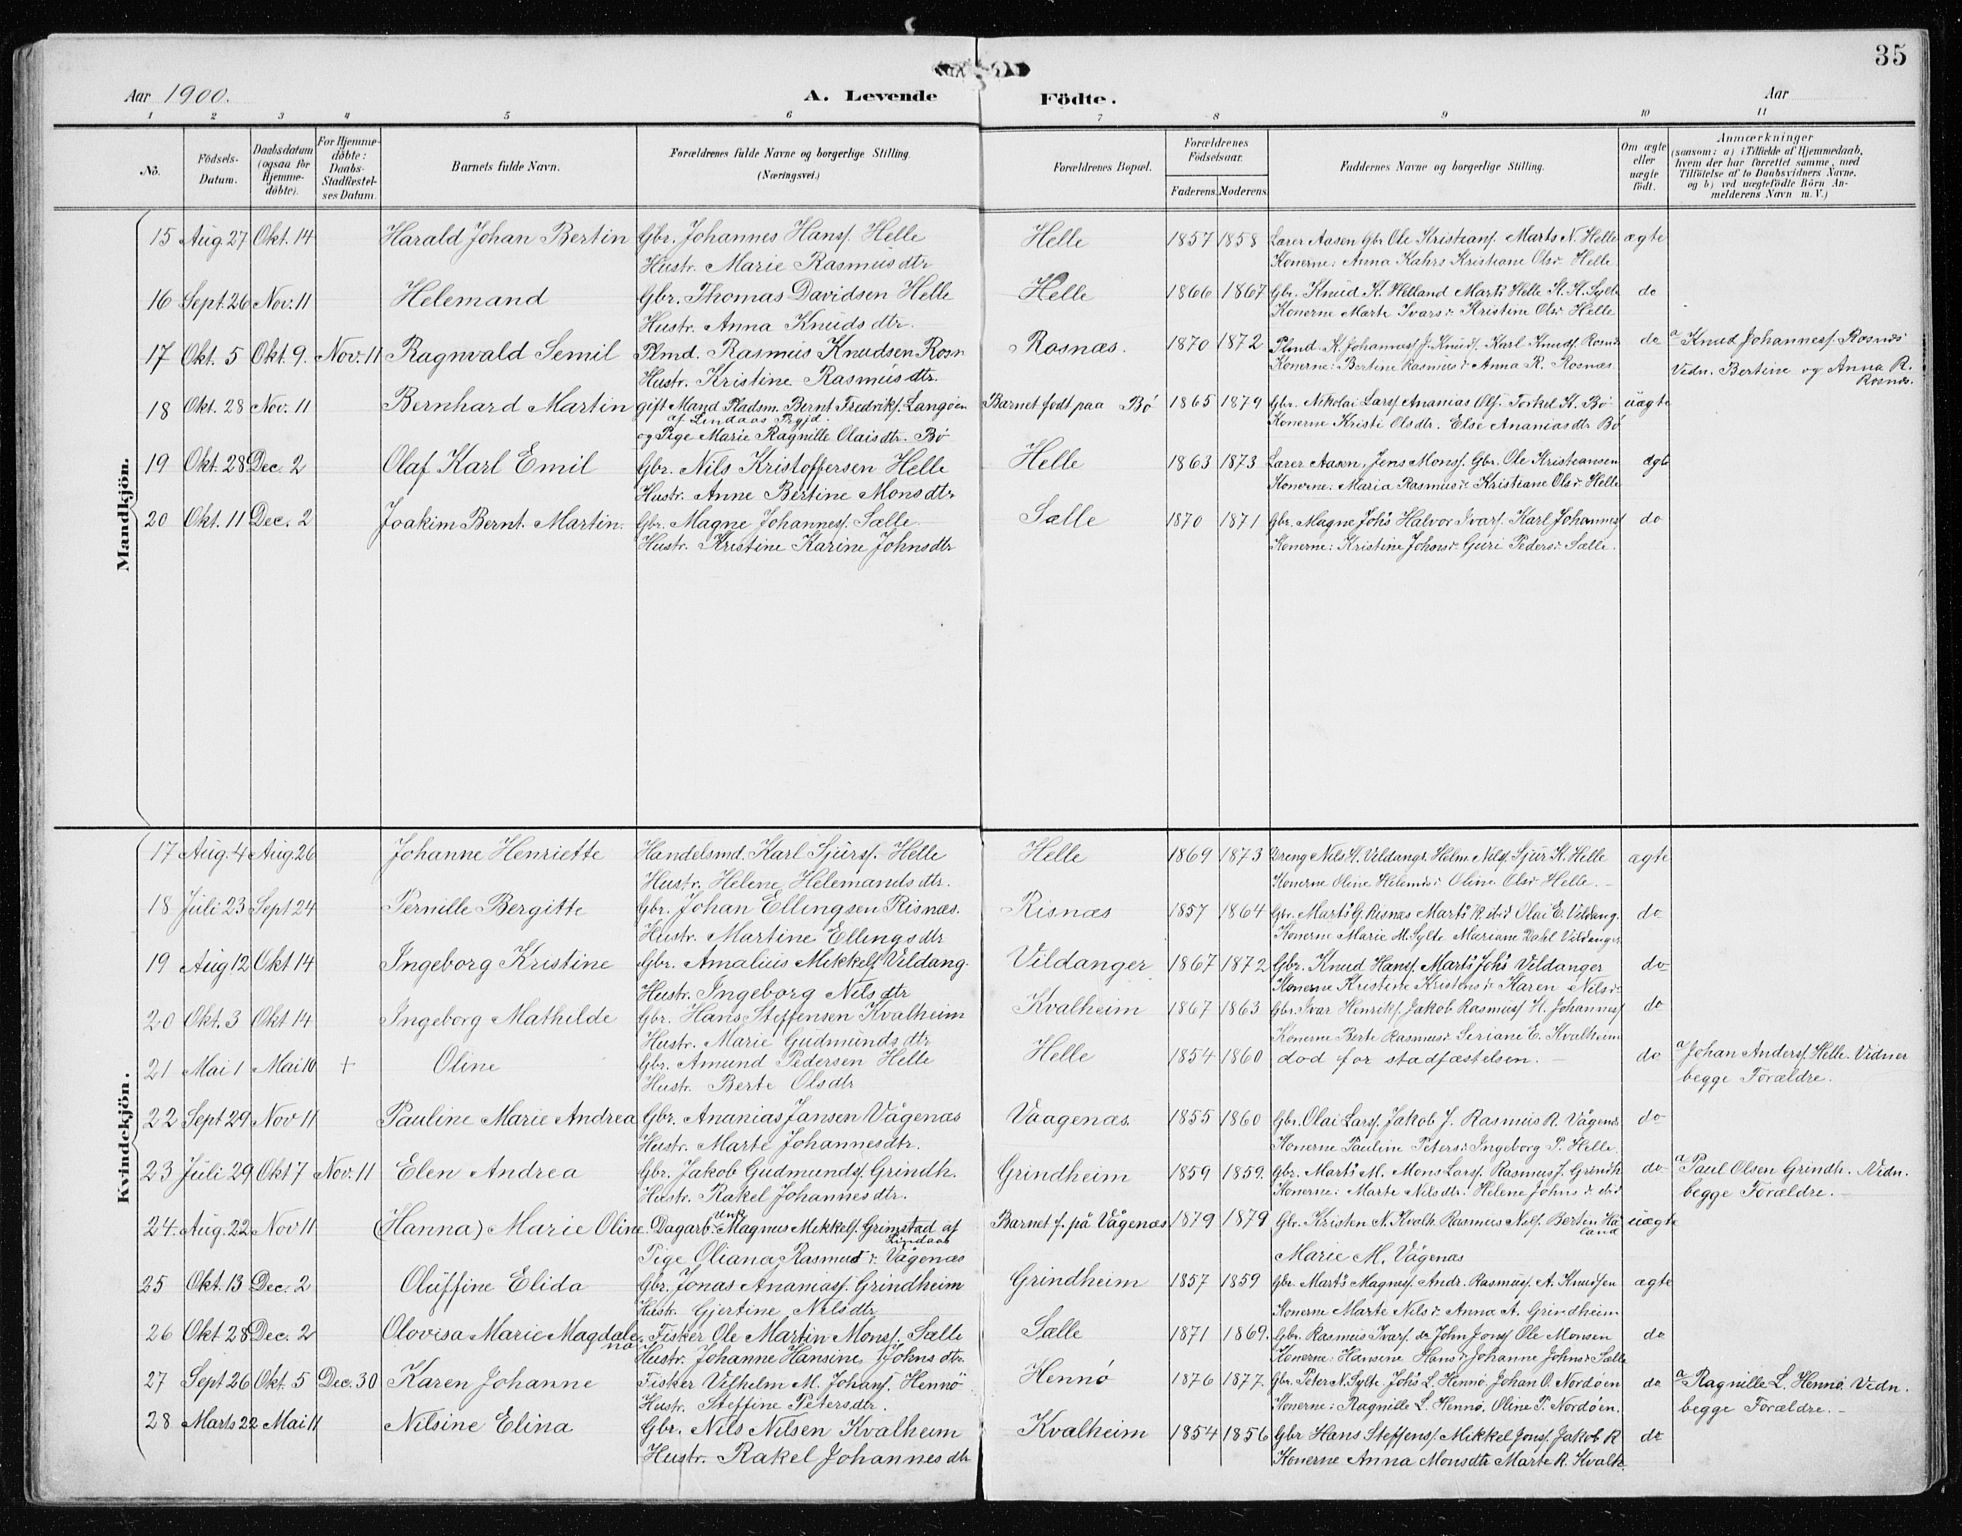 35
Aar 1900. A. Levende Födte. Aar
1 2 3 4 5 6 7 8 9 10 11
No. Födsels-Datum. Daabsdatum (ogsaa for Hjemmedöbte). For Hjemmedöbte: Daabs-Stadfæstelses Datum. Barnets fulde Navn. Forældrenes fulde Navne og borgerlige Stilling (Næringsvei.) Forældrenes Bopæl. Forældrenes Födselsaar. Faderens. Moderens. Faddernes Navne og borgerlige Stilling. Om ægte eller uægte födt. Anmærkninger (saasom: a) i Tilfælde af Hjemmedaab, hvem der har forrettet samme, med Tilföielse af to Daabsvidners Navne, og b) ved uægtefödte Börn Anmelderens Navn m. V.)
Mandkjön.
15 Aug 27 Okt. 14 Harald Johan Bertin Gbr. Johannes Hanss. Helle Helle 1857 1858 Lærer Aasen Gbr Ole Kristians. Marts N. Helle ægte
Hustr. Marie Rasmusdtr Konerne: Anna Kahrs Kristiane Olsd. Helle
16 Sept. 26 Nov. 11 Helemand Gbr. Thomas Davidsen Helle Helle 1866 1867 Gbr. Knud K. Helland Marts Helle K. K. Sylte do
Hustr. Anna Knudsdtr. Konerne Marte Ivarsd. Kristine Olsd. Helle
17 Okt. 5 Okt. 9. Nov. 11 Ragnvald Semil Plmd. Rasmus Knudsen Rosn Rosnæs. 1870 1872 Plmd K. Johanness. J. Knuds. Karl Knuds. Rosnæs do a Knud Johanness. Rosnæs
Hustr. Kristine Rasmusdtr. Konerne: Bertine Rasmusd. Anna R. Rosnæs. Vidn. Bertine og Anna R. Rosnæs.
18 Okt. 28 Nov. 11 Bernhard Martin gift Mand Pladsm. Bernt Fredriks. Langöen Barnet födt paa Bö 1865 1879 Gbr. Nikolai Larss. Ananias Ols. Torkel K. Bö uægte
af Lindaas Prgjd.
og Pige Marie Ragnille Olaisdtr. Bö Konerne Kristi Olsdtr. Else Ananiasdtr Bö
19 Okt. 28 Dec. 2 Olaf Karl Emil Gbr. Nils Kristoffersen Helle Helle 1863 1873 Lærer Aasen, Jens Monss. Gbr. Ole Kristiansen ægte
Hustr. Anne Bertine Monsdtr Konerne: Maria Rasmusd. Kristiane Olsd. Helle
20 Okt. 11 Dec. 2 Joakim Bernt Martin. Gbr. Magne Johanness. Sælle. Sælle 1870 1871 Gbr. Magne Johs Halvor Ivars. Karl Johanness do
Hustr. Kristine Karine Johnsdtr Konerne: Kristine Johnsd. Guri Pedersd. Sælle.
Kvindekjön.
17 Aug. 4 Aug 26 Johanne Henriette Handelsmd. Karl Sjurss. Helle Helle 1869 1873 Dreng Nils H. Vildangr. Helm. Nils. Sjur K. Helle ægte
Hustr. Helene Helemandsdtr. Konerne Oline Helemsd. Oline Olsd. Helle.
18 Juli 23 Sept 24 Pernille Bergitte Gbr. Johan Ellingsen Risnæs. Risnæs 1857 1864 Gbr. Marts G. Risnæs Marts R. ibid Olai E. Vildang. do
Hustr. Martine Ellingsdtr Konerne Marie M. Sylte Mariane Dahl Vildanger
19 Aug 12 Okt 14 Ingeborg Kristine Gbr. Amalius Mikkels. Vildang. Vildanger 1867 1872 Gbr. Knud Hanss. Marts Johs Vildanger do
Hustr. Ingeborg Nilsdtr Konerne Kristine Kristensd. Karen Nilsd.
20 Okt. 3 Okt 14 Ingeborg Mathilde Gbr. Hans Steffensen Kvalheim Kvalheim 1867 1863 Gbr. Ivar Henriks. Jakob Rasmuss H. Johanness do
Hustr. Marie Gudmundsdtr Konerne Berte Rasmusd. Seriane E. Kvalheim
21 Mai 1 Mai 10 + Oline Gbr. Amund Pedersen Helle Helle 1854 1860 död for stadfæstelsen. do a Johan Anderss. Helle. Vidner
Hustr. Berte Olsdtr begge Forældre.
22 Sept 29 Nov 11 Pauline Marie Andrea Gbr. Ananias Jansen Vågenæs Vaagenæs. 1855 1860 Gbr. Olai Larss. Jakob J. Rasmus R. Vågenæs do
Hustr. Marte Johannesdtr. Konerne Pauline Petersd. Ingeborg P. Helle
23 Juli 29 Okt 7 Nov. 11 Elen Andrea Gbr. Jakob Gudmunds. Grindh. Grindheim 1859 1859. Gbr. Marts M. Mons Larss. Rasmus J. Grindh. do a Paul Olsen Grindh. Vidn.
Hustr. Rakel Johannesdtr. Konerne: Marte Nilsdtr. Helene Johnsd ibid begge Forældre.
24. Aug. 22 Nov 11 (Hanna) Marie Oline Dagarb. Unk. Magnus Mikkels. Grimstad af Lindaas Barnet f. på Vågenæs 1879 1879 Gbr. Kristen N. Kvalh. Rasmus Nils. Bertin Haaland uægte
Pige Oliana Rasmusd. Vågenæs Marie M. Vågenæs
25 Okt. 13 Dec. 2 Oluffine Elida Gbr. Jonas Ananiass. Grindheim Grindheim 1857 1859 Gbr. Marts Magness. Andr. Rasmuss. A. Knudsen ægte
Hustr. Gjertine Nilsdtr Konerne Marte Nilsd. Anna A. Grindheim
26 Okt 28 Dec. 2 Olovisa Marie Magdalena. Fisker Ole Martin Monss. Sælle Sælle 1871 1869. Gbr. Rasmus Ivars. do John Jons. Ole Monsen do
Hustr. Johanne Hansine Johnsdtr. Konerne: Hansine Hansd. Johanne Johnsd. Sælle
27 Sept 26 Okt. 5 Dec. 30 Karen Johanne Fisker Vilhelm M. Johans. Hennö Hennö 1876 1877. Gbr. Peter N. Sylte. Johs L. Hennö. Johan O. Nordöen do a Ragnille L. Hennö. Vidn.
Hustr. Steffine Petersdtr. Konerne: Ragnille L. Hennö. Oline P. Nordöen. begge Forældre.
28 Marts 22 Mai 11 Nilsine Elina Gbr. Nils Nilsen Kvalheim Kvalheim 1854 1856 Gbr Hans Steffens. Mikkel Jons. Jakob R do
Hustr. Rakel Johannesdtr Konerne Anna Monsdtr Marte R. Kvalh.